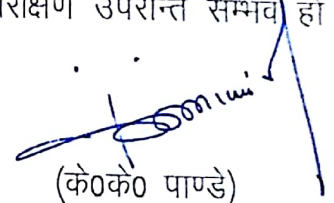 परीक्षण उपरान्त सम्भव हो
(के0के0 पाण्डे)